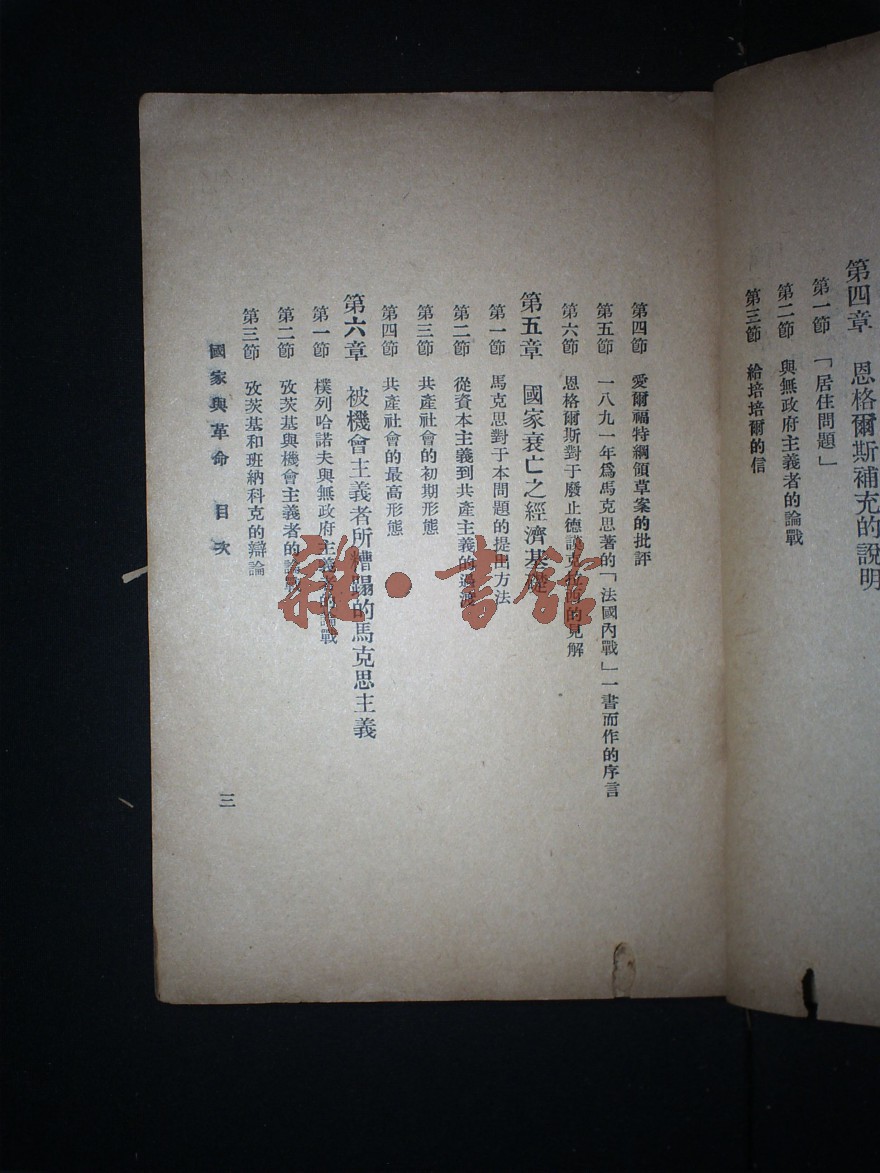 第四章 恩格爾斯補充的說明
第一節 「居住問題」
第二節 與無政府主義者的論戰
第三節 給培培爾的信
第四節 愛爾福特綱領草案的批評
第五節 一八九一年爲馬克思著的「法國內戰」一書而作的序言
第六節 恩格爾斯對于廢止德謨克拉西的見解
第五章 國家衰亡之經濟基礎
第一節 馬克思對于本問題的提出方法
第二節 從資本主義到共產主義的過渡
第三節 共產社會的初期形態
第四節 共產社會的最高形態
第六章 被機會主義者所糟蹋的馬克思主義
第一節 樸列哈諾夫與無政府主義者的論戰
第二節 攷茨基與機會主義者的論戰
第三節 攷茨基和班納科克的辯論
國家與革命 目次
三
雜·書館